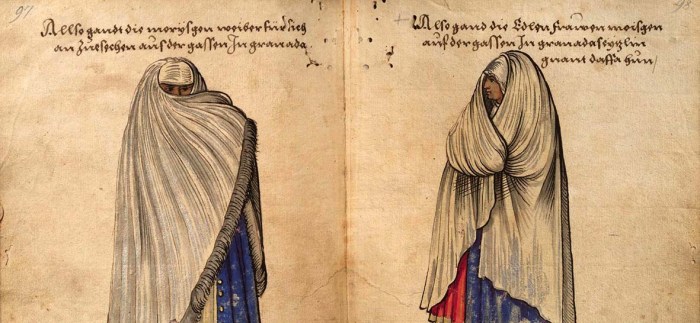 97
Allso gandt die morysgen weiber fürsich
an zuesechen aus der gassen In granada
98
Also gand die Edlen frawen moisgen
auf der gassen In granada
gnant